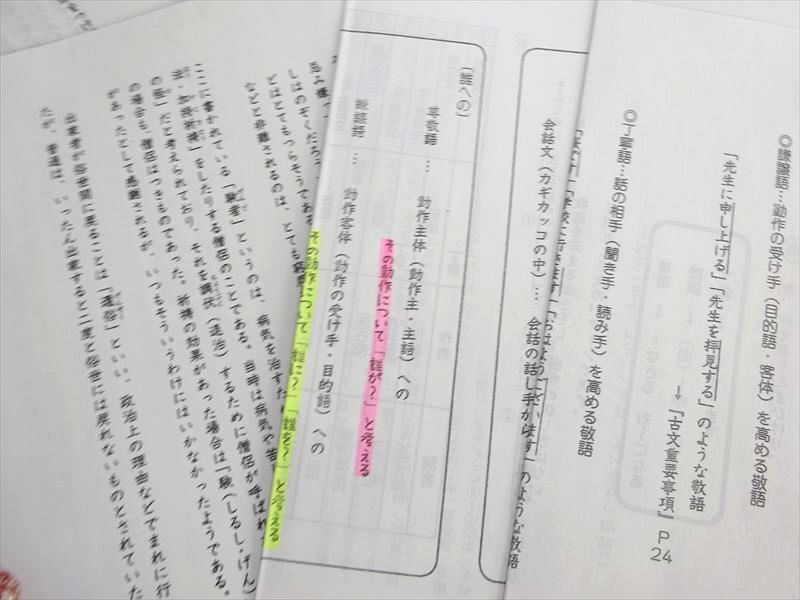 ◎謙譲語…動作の受け手（目的語・客体）を高める敬語
「先生に申し上げる」「先生を拝見する」のような敬語
→『古文重要事項』P24
◎丁寧語…話の相手（聞き手・読み手）を高める敬語
「学校に行きます」「おはようございます」のような敬語
会話文（カギカッコの中）… 会話の話し手から
［誰への］
尊敬語 … 動作主体（動作主・主語）への
その動作について「誰が？」と考える
謙譲語 … 動作客体（動作の受け手・目的語）への
その動作について「誰に？」「誰を？」と考える
しはのぞくだろう
どはとてもつらそうである
などと非難されるのは、とても窮
ここに書かれている「験者」というのは、病気を治すため
法・加持祈祷」をしたりする僧侶のことである。当時は病気や苦
の仮」だと考えられており、それを調伏（退治）するために僧侶が呼ばれ
の場合も、僧侶はつきものであった。祈祷の効果があった場合は「験（しるし・げん）
があったとして感謝されるが、いつもそういうわけにはいかなかったようである。
出家者が俗世間に戻ることは「還俗」といい、政治上の理由などでまれに行
たが、普通は、いったん出家すると二度と俗世には戻れないものとされていた